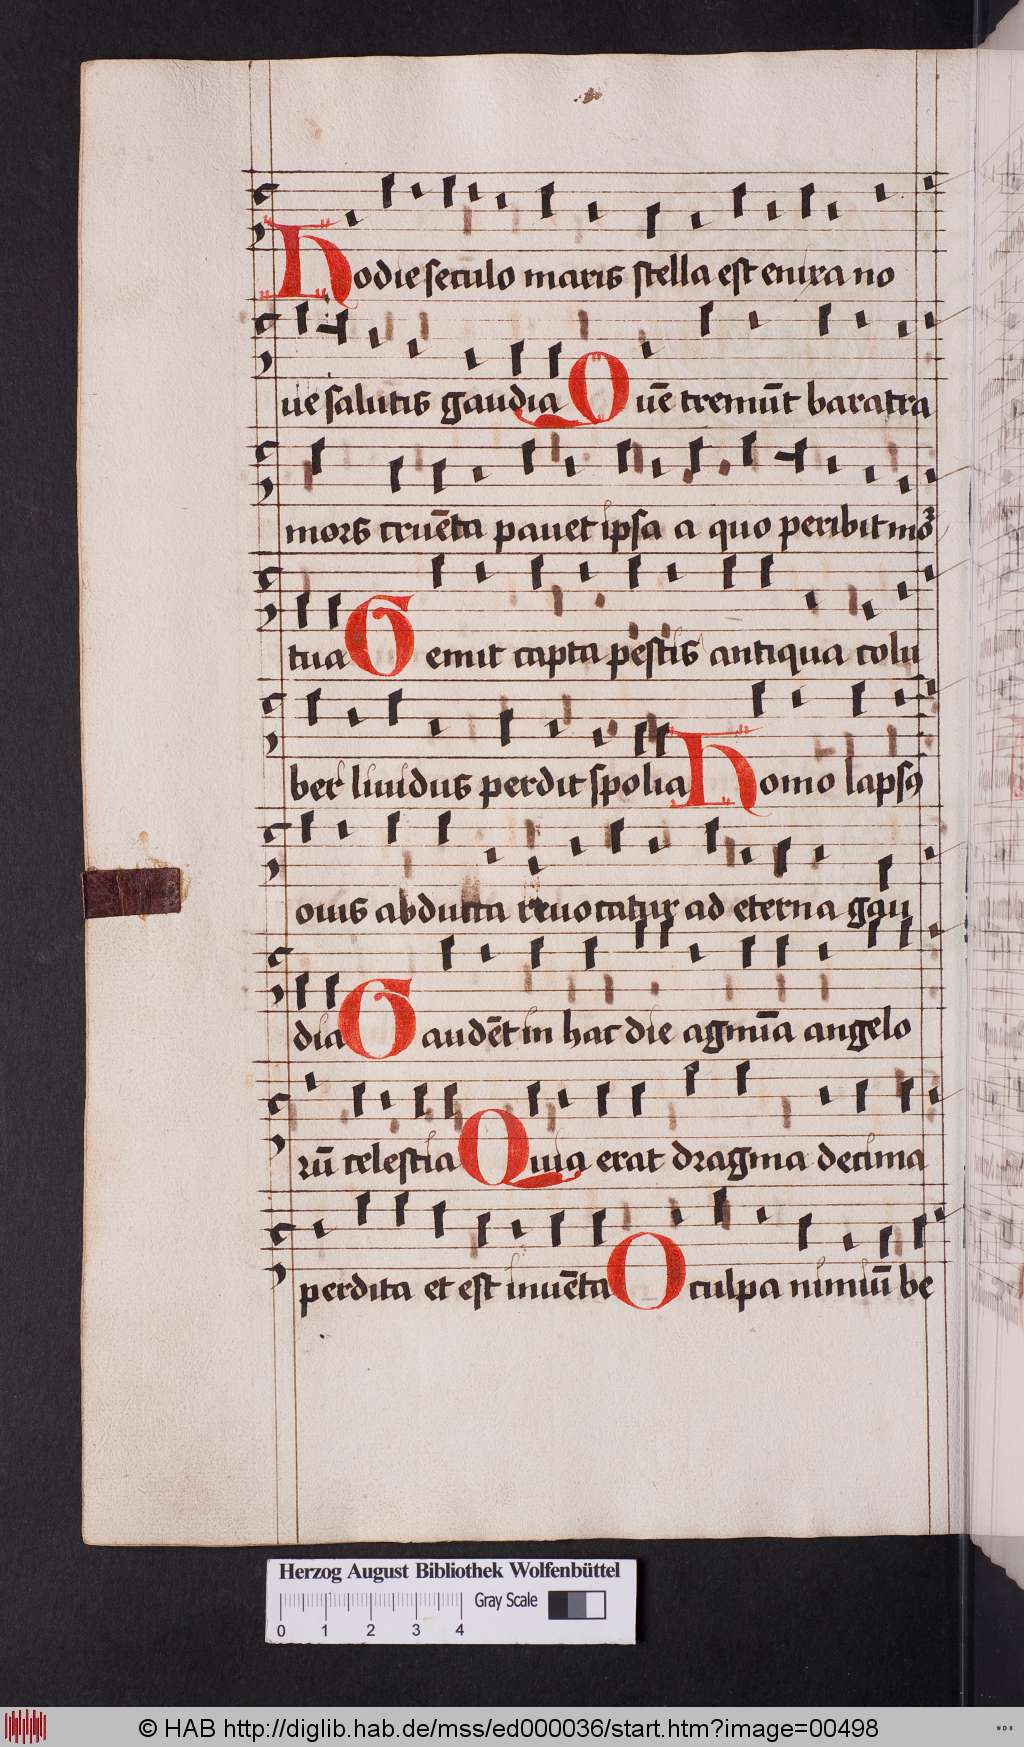 Hodie seculo maris stella est enixa no
ue salutis gaudia Quē tremūt baratra
mors cruēta pauet ipsa a quo peribit mor
tua Gemit capta pestis antiqua colu
ber liuidus perdit spolia Homo lapsꝰ
ouis abducta reuocatur ad eterna gau
dia Gaudēt in hac die agmīa angelo
rū celestia Quia erat dragma decima
perdita et est inuēta O culpa nimiū be
Herzog August Bibliothek Wolfenbüttel
Gray Scale
0 1 2 3 4
© HAB http://diglib.hab.de/mss/ed000036/start.htm?image=00498